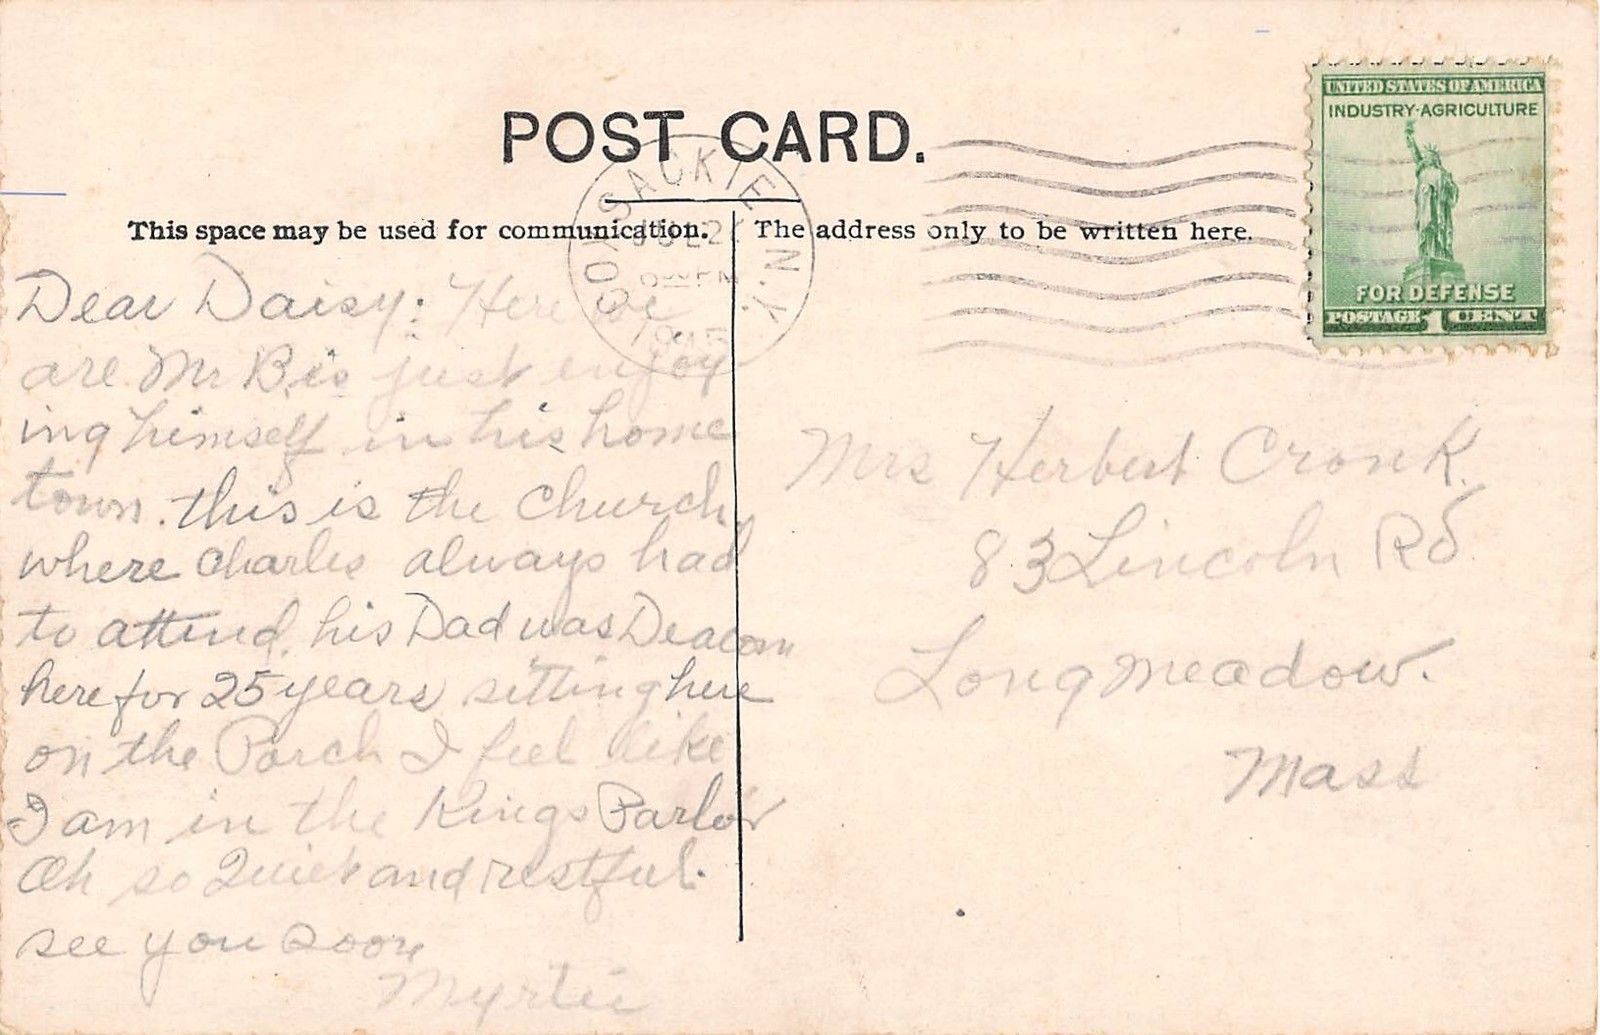 POST CARD.
COXSACKIE N.Y.
JUL 2
1945
UNITED STATES OF AMERICA
INDUSTRY-AGRICULTURE
FOR DEFENSE
POSTAGE 1 CENT
This space may be used for communication.
The address only to be written here.
Dear Daisy: Here we
are Mr B. is just enjoy
ing himself in his home
town. this is the Church,
where Charles always had
to attend. his Dad was Deacon
here for 25 years sitting here
on the Porch I feel like
I am in the Kings Parlor
Oh so Quiet and restful.
see you soon
Myrtie
Mrs Herbert Cronk.
83 Lincoln Rd
Longmeadow.
Mass